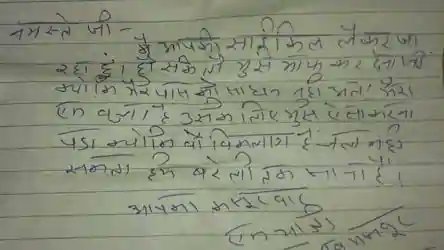 नमस्ते जी -
मैं आपकी साईकिल लेकर जा
रहा हूं। हो सके तो मुझे माफ कर देना जी
क्योंकि मेरे पास कोई साधन नहीं था। मेरा
एक बच्चा है उसके लिए मुझे ऐसा करना
पड़ा क्योंकि वो विकलांग है चल नहीं
सकता हमें बरेली तक जाना है।
आपका कसूरवार
एक यात्री
मजदूर